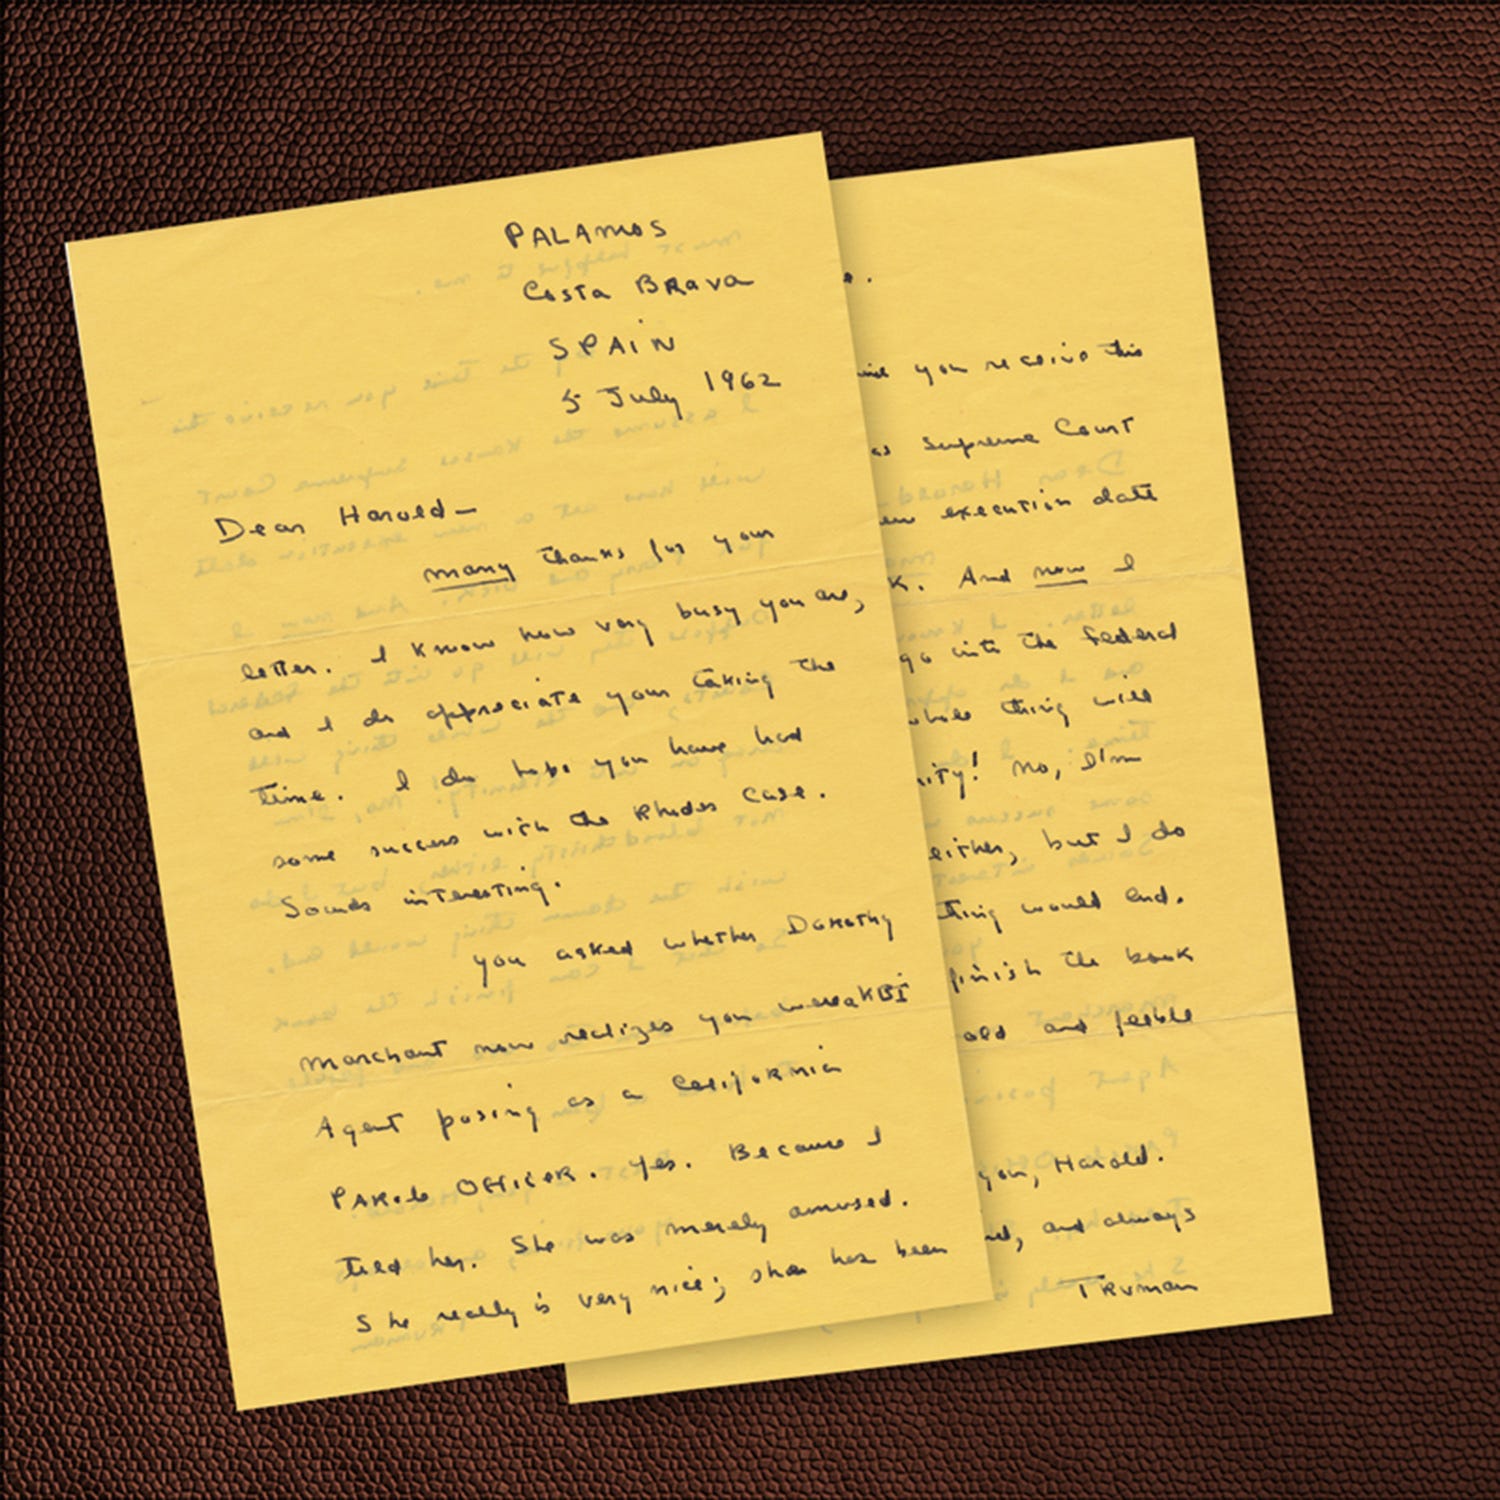 PALAMOS
Costa BRava
SPAiN
5 July 1962
Dear Harold—
many thanks for your
letter. I know how very busy you are,
and I do appreciate your taking the
time. I do hope you have had
some success with the Rhodes Case.
Sounds interesting.
you asked whether Dorothy
Marchant now realizes you were a KBI
Agent posing as a California
PARole OFFICER. Yes. Because I
told her. She was merely amused.
She really is very nice; she has been
you receive this
as Supreme Court
execution date
K. And now I
go into the federal
whole thing will
nity! No, I'm
either, but I do
thing would end.
finish the book
old and feeble
you, Harold.
and always
TRuman